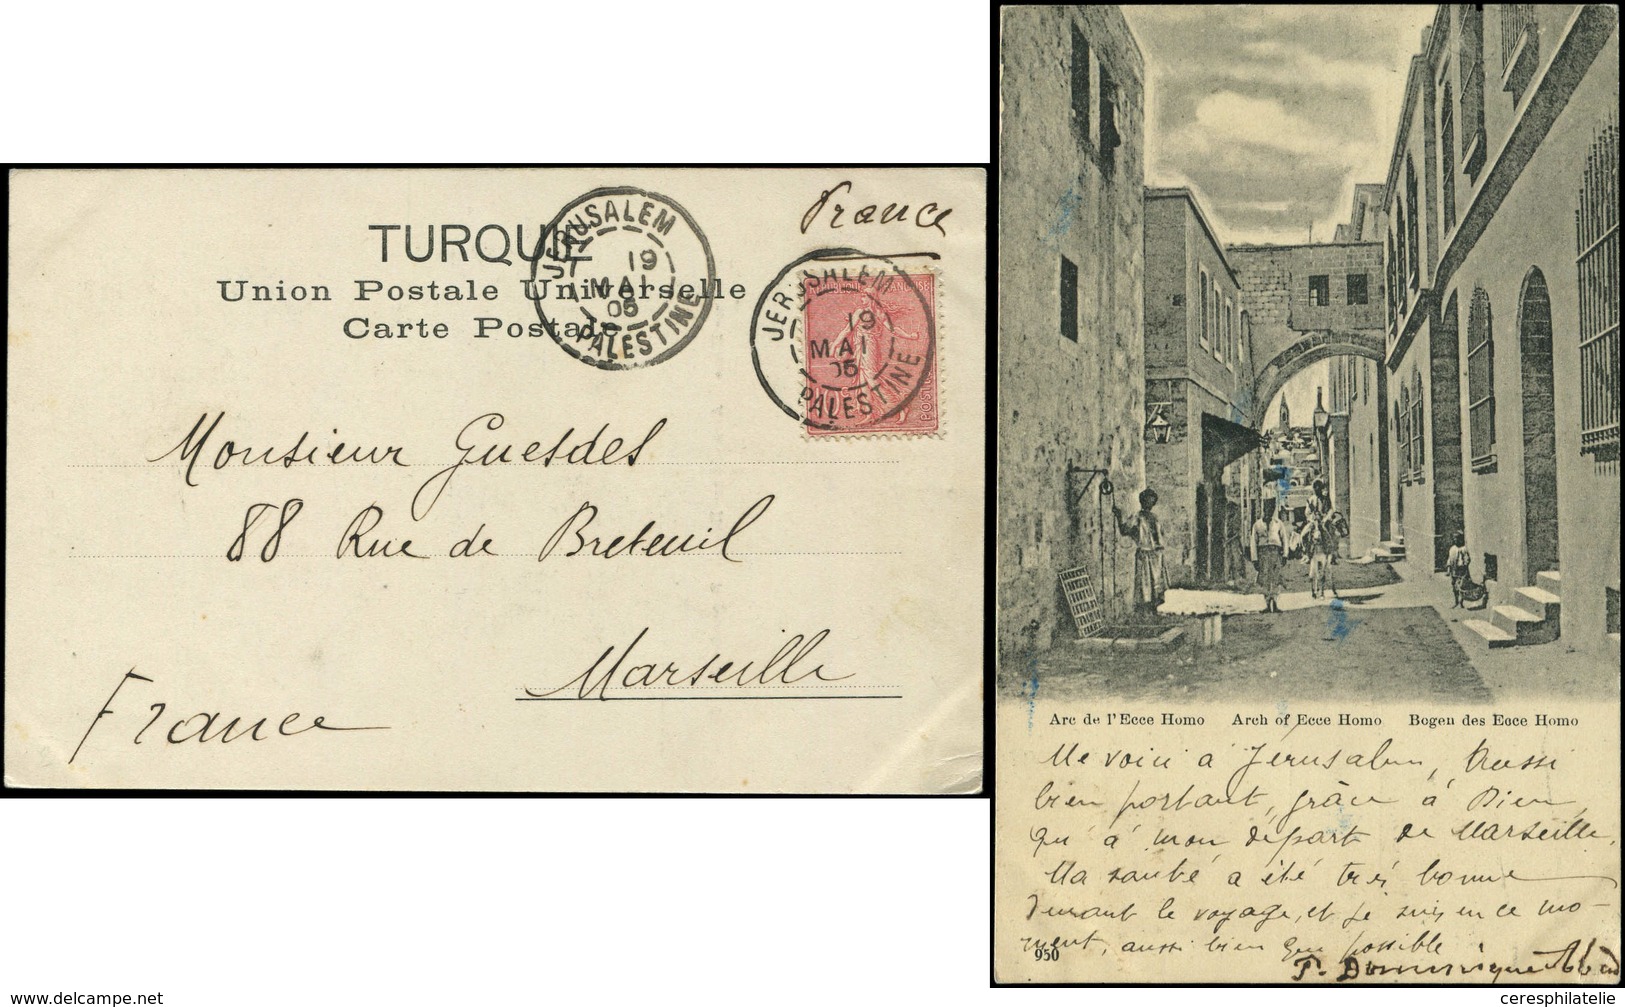 TURQUIE
Union Postale Universelle
Carte Postale
JERUSALEM
19
MAI
05
PALESTINE
France
JERUSALEM
19
MAI
05
PALESTINE
Monsieur Guesdes
88 Rue de Breteuil
Marseille
France
Arc de l'Ecce Homo Arch of Ecce Homo Bogen des Ecce Homo
Me voici à Jerusalem, aussi
bien portant, grâce à Dieu,
qu'à mon départ de Marseille.
Ma santé a été très bonne
durant le voyage, et je suis en ce mo-
ment, aussi bien que possible.
950
F. Dominique
delcampe.net
ceresphilatelie